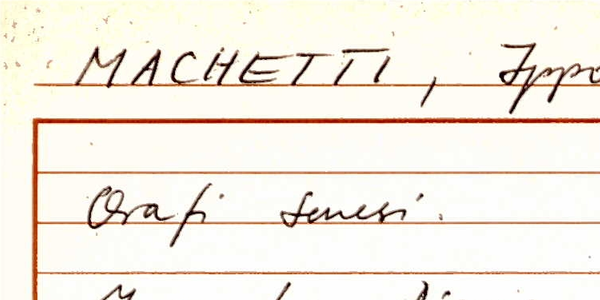 MACHETTI, Ippo
Orafi senesi.